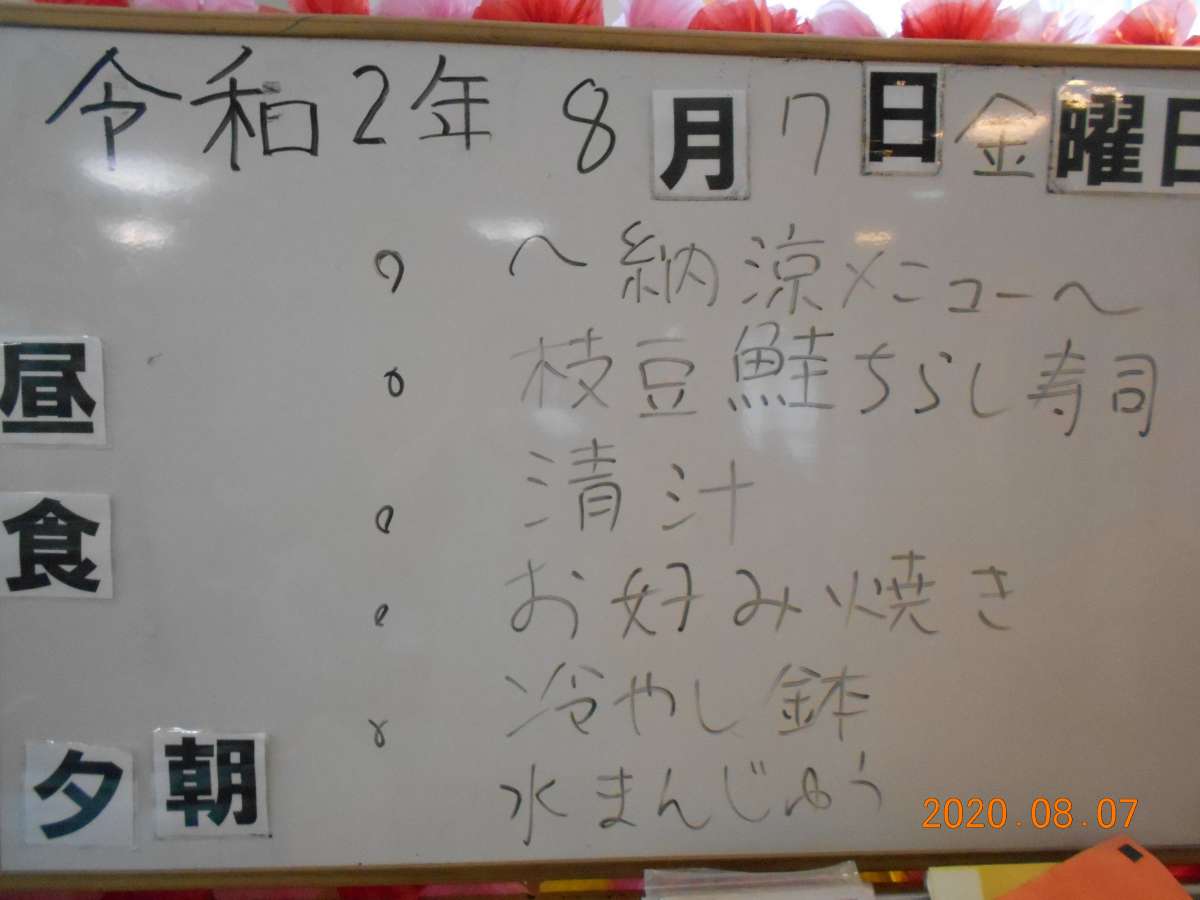 令和2年 8月7日金曜日
〜納涼メニュー〜
枝豆鮭ちらし寿司
清汁
お好み焼き
冷やし鉢
水まんじゅう
昼
食
夕 朝
2020.08.07